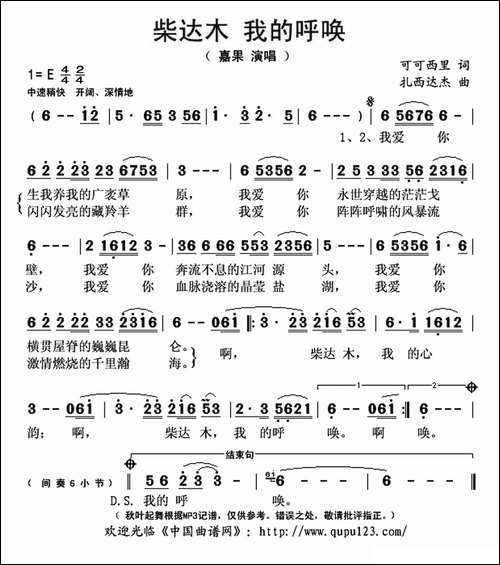 柴达木 我的呼唤
（ 嘉果 演唱 ）
1=E 4/4 2/4
可可西里 词
中速稍快 开阔、深情地
扎西达杰 曲
( 6 - - i 2 | 5 · 65 3 56 | i · 3 2 · 5 | 6 - - - ) | 6 5676 6 - |
1、2、我爱 你
6 2 2 2 23 6753 | 3 - - - | 6 5356 6 - | 2 5 3 33 56 2321 |
生我养我的广袤草 原， 我爱 你 永世穿越的茫茫戈
闪闪发亮的藏羚羊 群， 我爱 你 阵阵呼啸的风暴流
6 - - - | 2 1612 3 - | 3 36 66 553 2356 | 6 - - - | 6 5356 i · 6 |
壁， 我爱 你 奔流不息的江河 源 头， 我爱 你
沙， 我爱 你 血脉浇溶的晶莹 盐 湖， 我爱 你
6 2 22 2 2 3 32316 | 6 - - 06i ‖: 3 · 23 216 53 | 6 · i 5 643 |
横贯屋脊的巍巍昆 仑。 啊， 柴达 木， 我 的心
激情燃烧的千里瀚 海。
3 - - 06i | 3 · 23 216 53 | 3 2 5621 | 6 - - 06i :‖ 6 - - - |
韵； 啊， 柴达 木， 我 的呼 唤。 啊 唤。
1 2
结束句
( 间 奏 6 小 节 ) ‖ 56 23 3 - | 6 - - - | 6 - - - ‖
D.S. 我的 呼 唤。
（ 秋叶起舞根据MP3记谱，仅供参考。错误之处，敬请批评指正。）
欢迎光临《中国曲谱网》：http://www.qupu123.com/